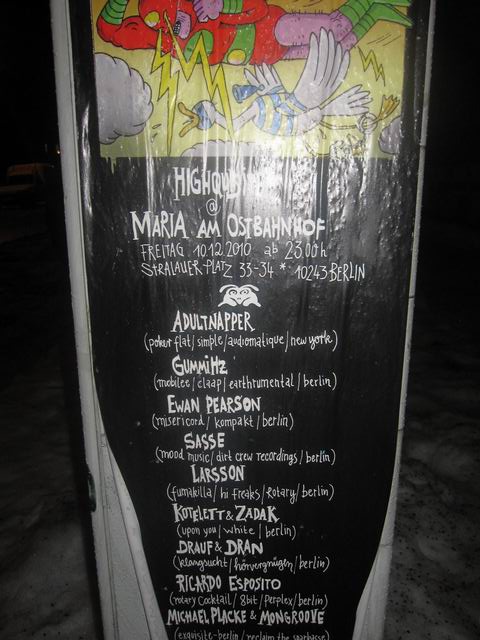 @
MARIA AM OSTBAHNHOF
FREITAG 10.12.2010 ab 23.00h
STRALAUER-PLATZ 33-34 * 10243 BERLIN
ADULTNAPPER
(poker flat/simple/audiomatique/new york)
GUMMIHZ
(mobilee/claap/earthrumental/berlin)
EWAN PEARSON
(misericord/kompakt/berlin)
SASSE
(mood music/dirt crew recordings/berlin)
LARSSON
(fumakilla/hi freaks/Rotary/berlin)
KOTELETT & ZADAK
(upon you/white/berlin)
DRAUF & DRAN
(klangsucht/hörvergnügen/berlin)
RICARDO ESPOSITO
(rotary Cocktail/8bit/perplex/berlin)
MICHAEL PLACKE & MONGROOVE
(exquisite-berlin/reclaim the